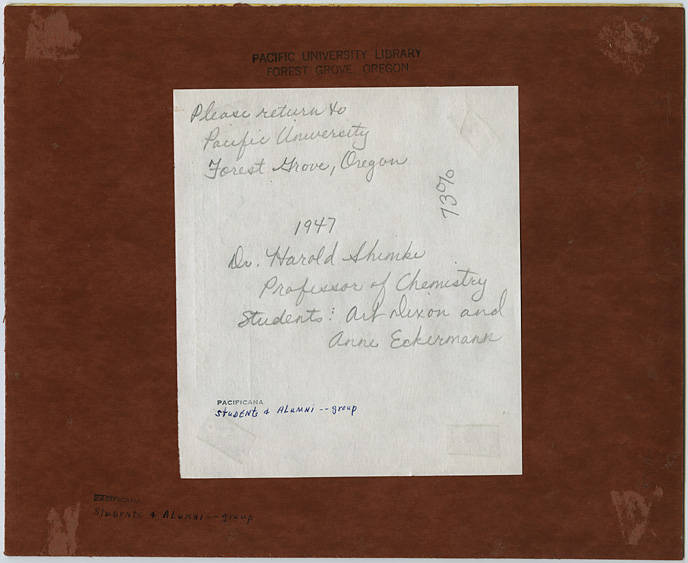 PACIFIC UNIVERSITY LIBRARY
FOREST GROVE, OREGON
Please return to
Pacific University
Forest Grove, Oregon
73%
1947
Dr. Harold Shimke
Professor of Chemistry
Students: Art Dixon and
Anne Eckermann
PACIFICANA
STUDENTS & ALUMNI -- group
PACIFICANA
STUDENTS & ALUMNI -- group